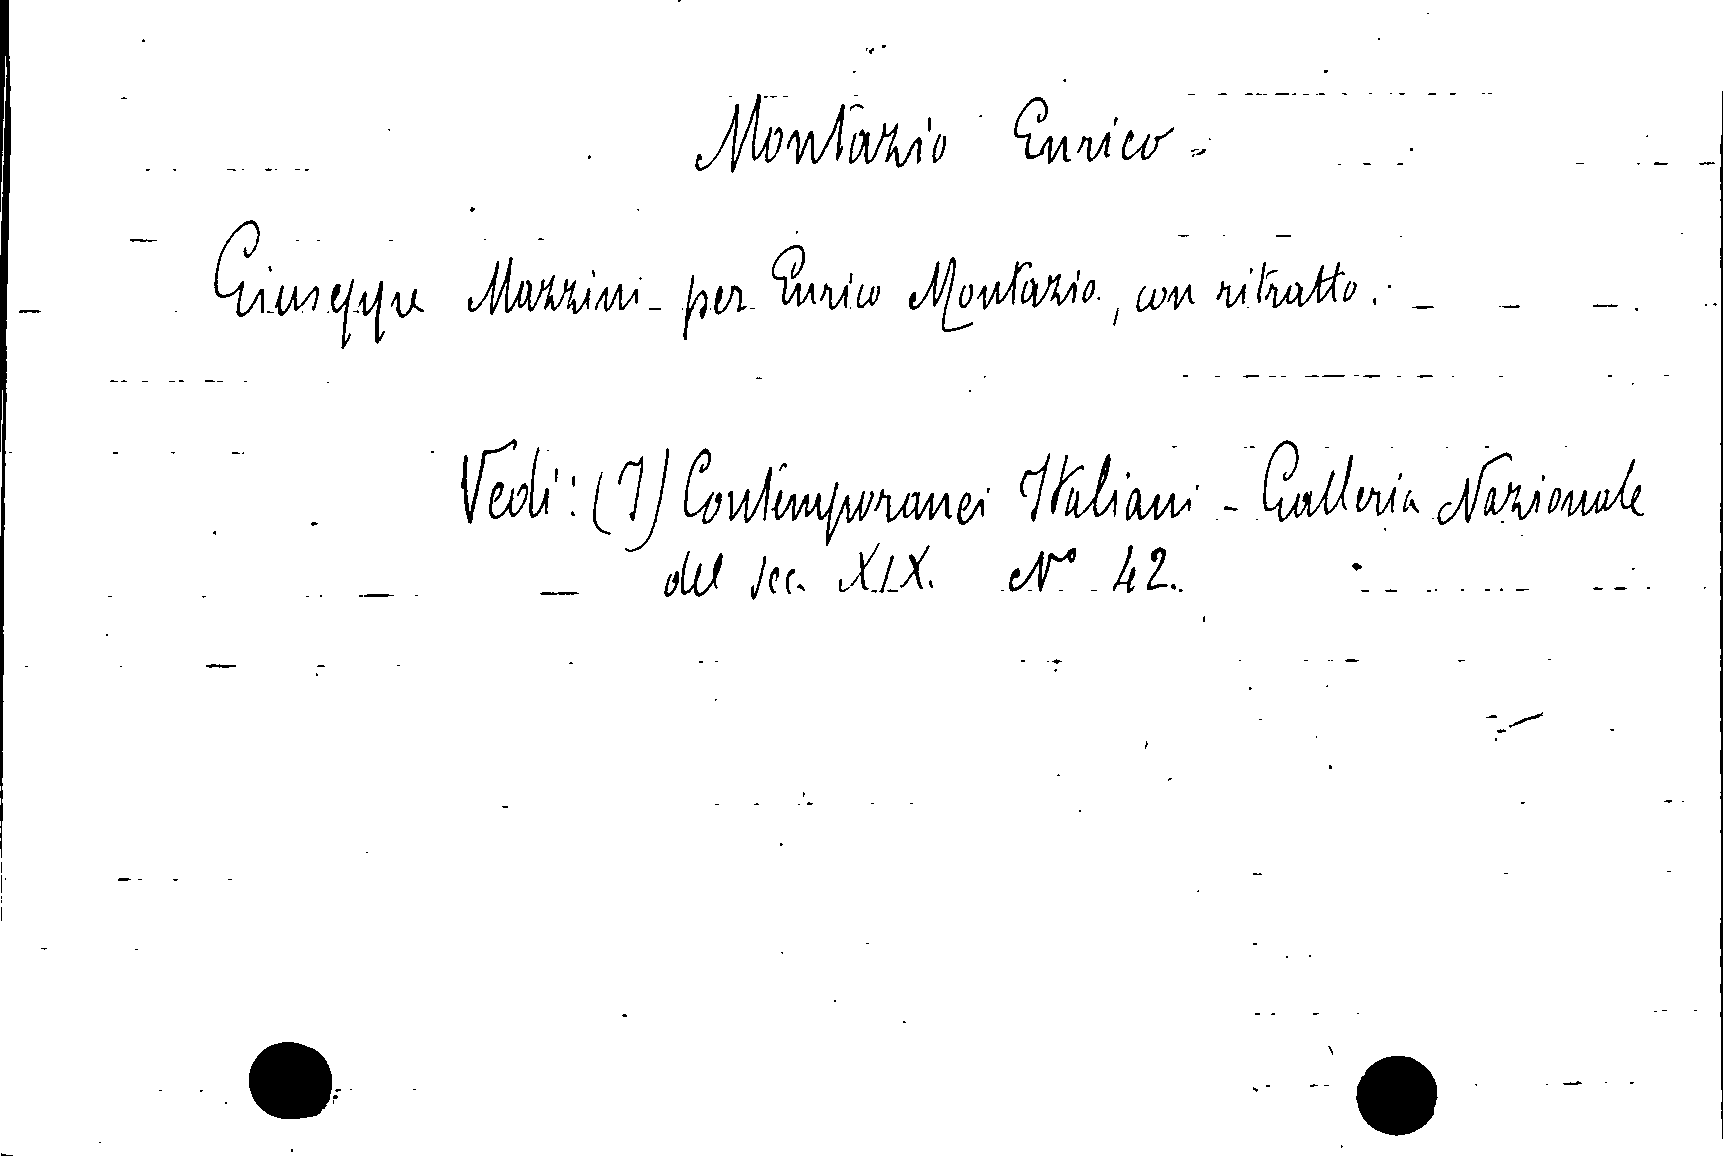 Montazio Enrico -
Giuseppe Mazzini - per Enrico Montazio, con ritratto.
Vedi: (I) Contemporanei Italiani - Galleria Nazionale
del sec. XIX. N° 42.